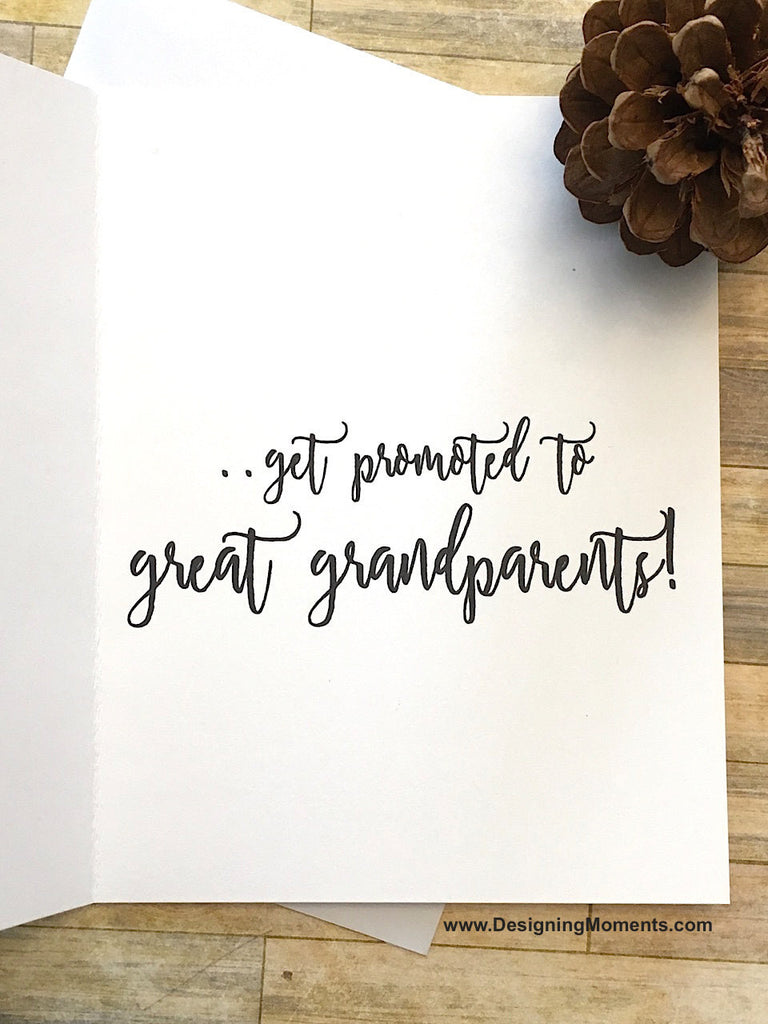 ..get promoted to
great grandparents!
www.DesigningMoments.com